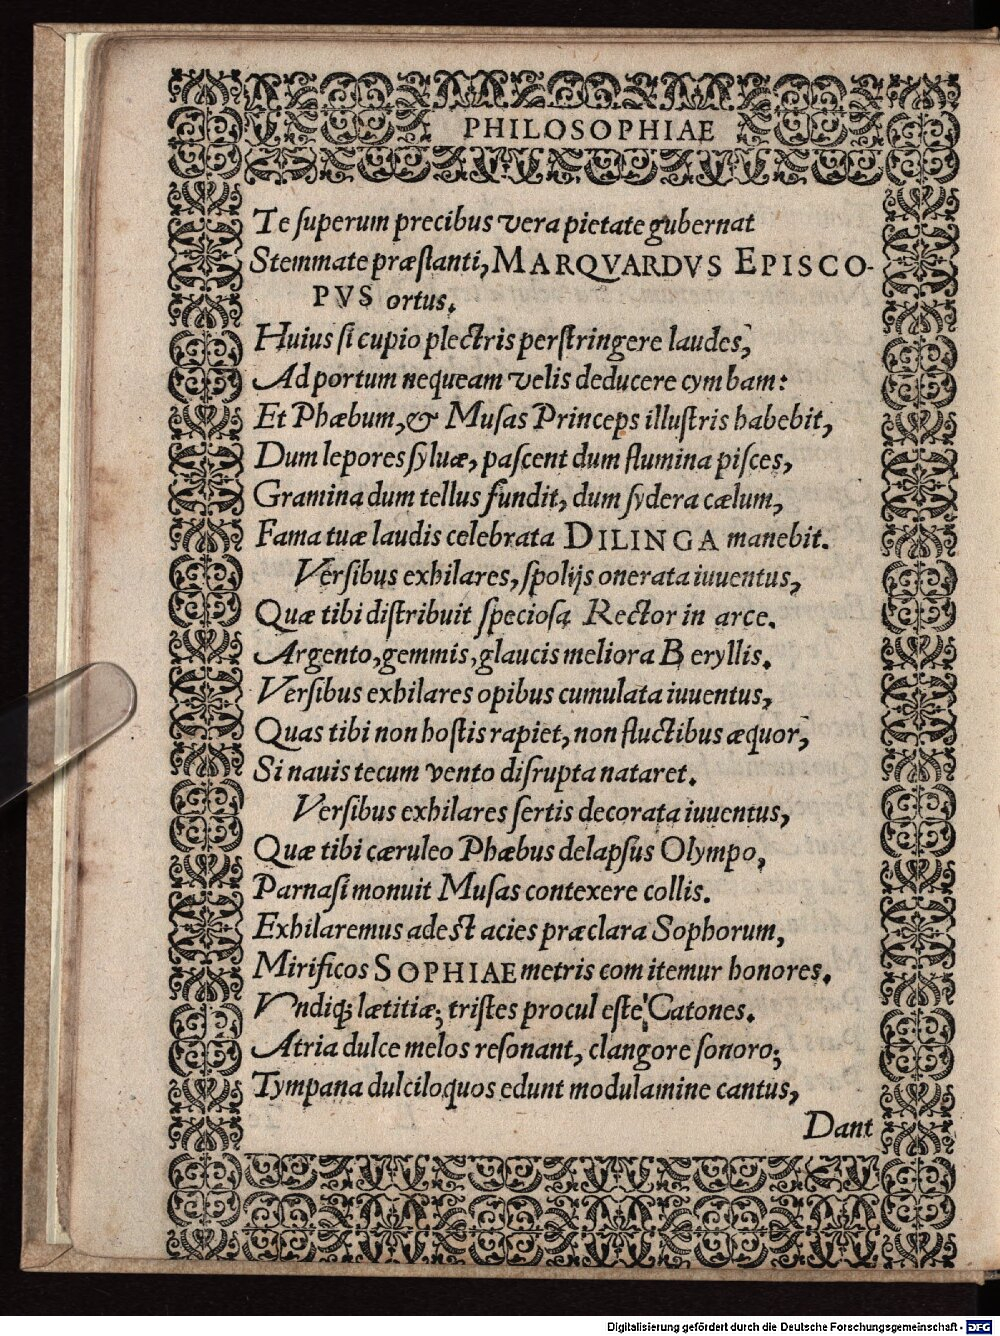 PHILOSOPHIAE
Te ſuperum precibus vera pietate gubernat
Stemmate præſtanti, MARQVARDVS EPISCO-
PVS ortus.
Huius ſi cupio plectris perſtringere laudes,
Ad portum nequeam velis deducere cymbam:
Et Phæbum, & Muſas Princeps illuſtris habebit,
Dum lepores ſyluæ, paſcent dum flumina piſces,
Gramina dum tellus fundit, dum ſydera cælum,
Fama tuæ laudis celebrata DILINGA manebit.
Verſibus exhilares, ſpolijs onerata iuuentus,
Quæ tibi diſtribuit ſpecioſa Rector in arce.
Argento, gemmis, glaucis meliora Beryllis.
Verſibus exhilares opibus cumulata iuuentus,
Quas tibi non hoſtis rapiet, non fluctibus æquor,
Si nauis tecum vento diſrupta nataret.
Verſibus exhilares ſertis decorata iuuentus,
Quæ tibi cæruleo Phæbus delapſus Olympo,
Parnaſi monuit Muſas contexere collis.
Exhilaremus adest acies præclara Sophorum,
Mirificos SOPHIAE metris comitemur honores.
Vndiq; lætitiæ; triſtes procul eſte Catones.
Atria dulce melos reſonant, clangore ſonoro;
Tympana dulciloquos edunt modulamine cantus,
Dant
Digitalisierung gefördert durch die Deutsche Forschungsgemeinschaft - DFG